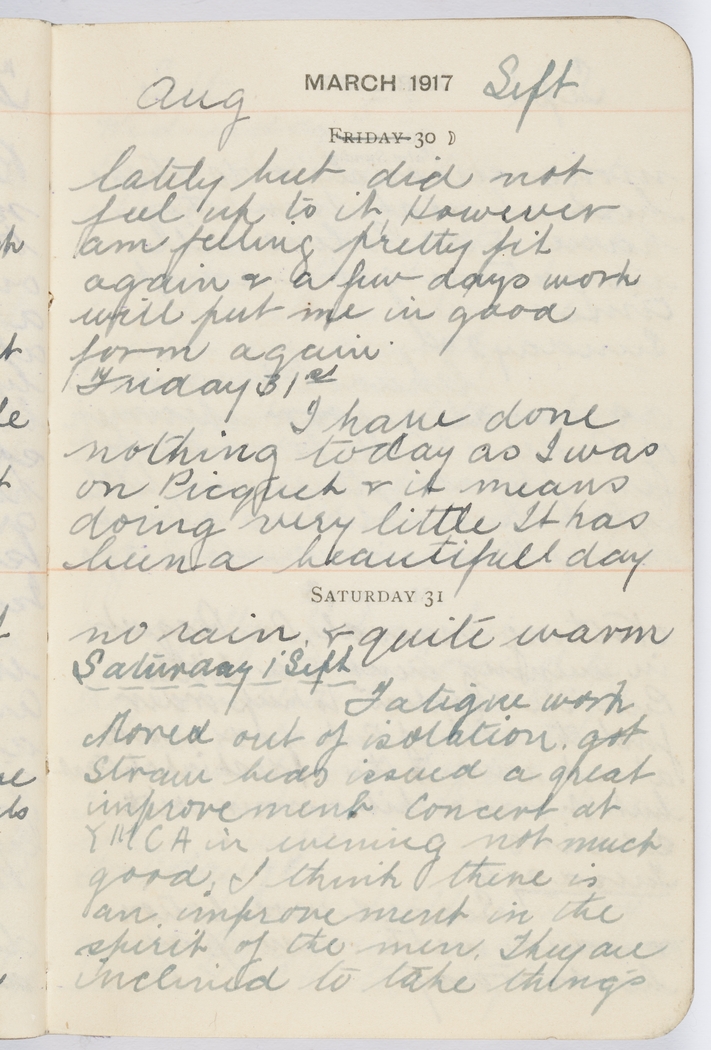 Aug MARCH 1917 Sept
FRIDAY 30
lately but did not
feel up to it, However
am felling pretty fit
again & a few days work
will put me in good
form again.
Friday 31st
I have done
nothing today as I was
on Picquet & it means
doing very little It has
been a beautifull day
SATURDAY 31
no rain, & quite warm
Saturday 1 Sept
Fatigue work
Moved out of isolation. got
Straw beds issued a great
improvement Concert at
YMCA in evening not much
good, I think there is
an improvement in the
spirit of the men. They are
inclined to take things